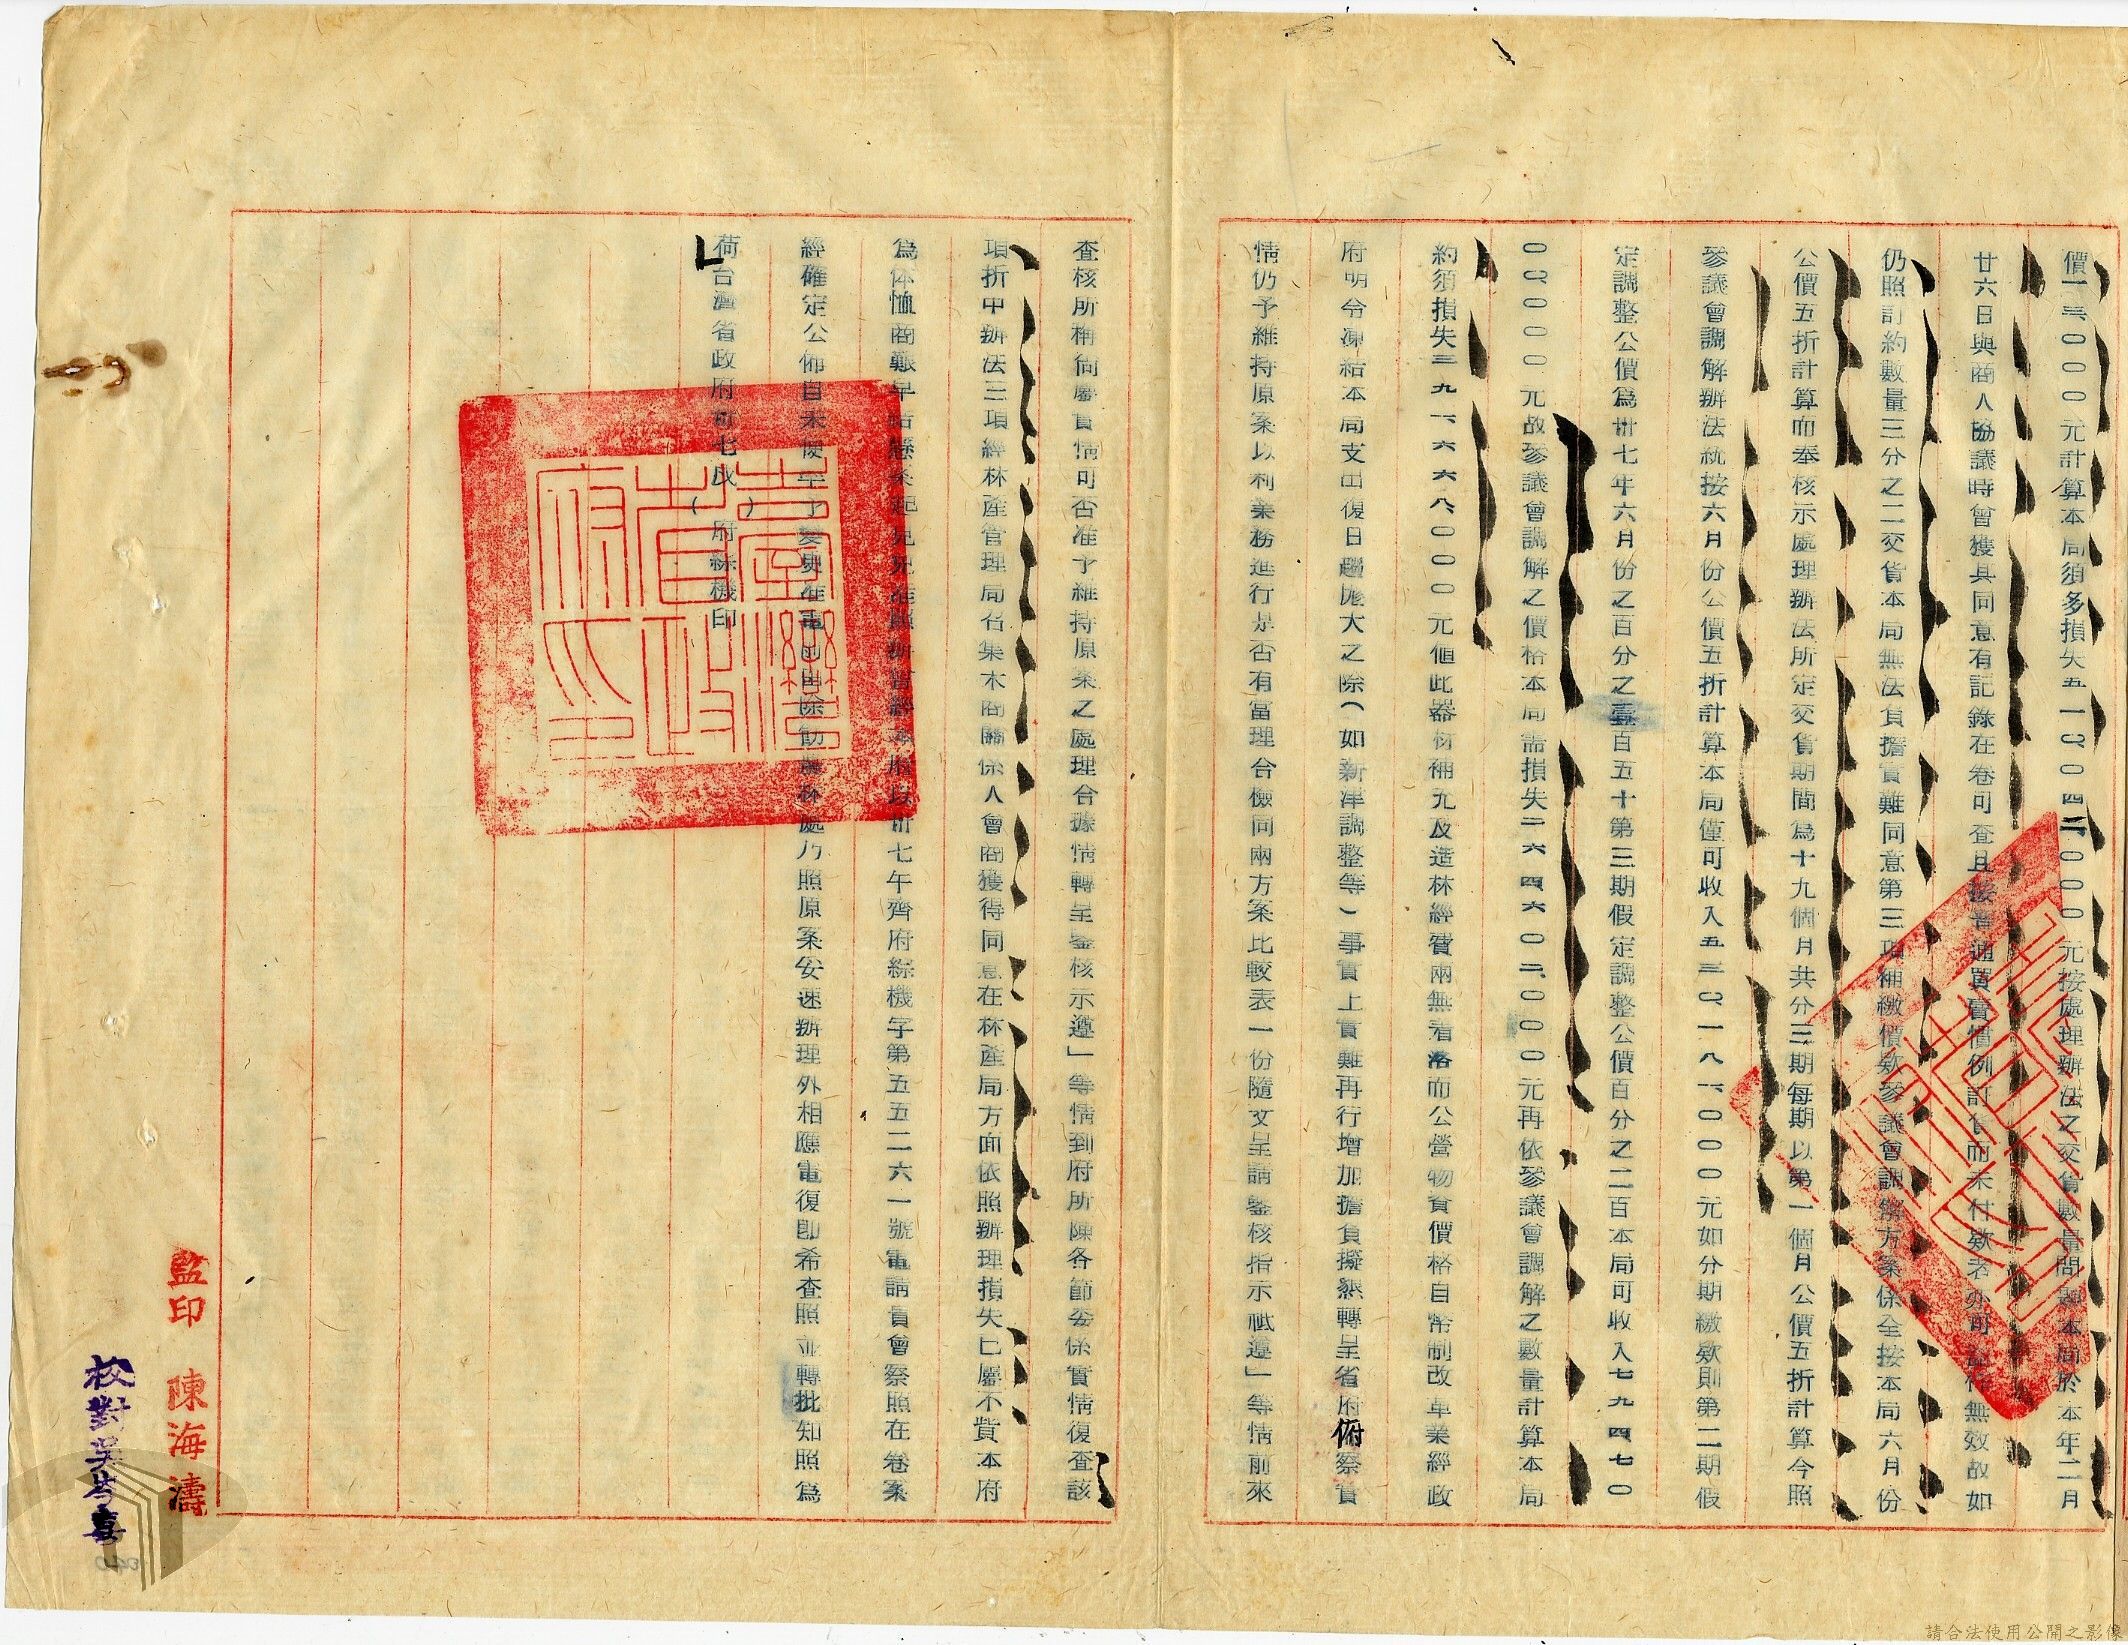 價一三〇〇〇元計算本局須多損失五一〇四二〇〇〇元按處理辦法之交貨數量問題本局於本年二月
廿六日與商人協議時曾獲其同意有記錄在卷可查且按普通買賣慣例訂貨而未付欵者亦可無效故如
仍照訂約數量三分之二交貨本局無法負擔實難同意第三項補繳價欵參議會調解方案係全按本局六月份
公價五折計算而奉核示處理辦法所定交貨期間為十九個月共分三期每期以第一個月公價五折計算今照
參議會調解辦法統按六月份公價五折計算本局僅可收入五三〇一八一〇〇〇元如分期繳欵則第二期假
定調整公價為卅七年六月份之百分之壹百五十第三期假定調整公價百分之二百本局可收入七九四七〇
〇〇〇〇〇元故參議會調解之價格本局需損失二六四六〇二〇〇〇元再依參議會調解之數量計算本局
約須損失三九一六六八〇〇〇元值此器材補充及造林經費兩無着落而公營物資價格自幣制改革業經政
府明令凍結本局支出復日趨龐大之際（如新津調整等）事實上實難再行增加擔負擬懇轉呈省府俯察實
情仍予維持原案以利業務進行是否有當理合檢同兩方案比較表一份隨文呈請鑒核指示祗遵」等情前來
查核所稱尚屬實情可否准予維持原案之處理合據情轉呈鑒核示遵」等情到府所陳各節委係實情復查該
項折中辦法三項經林產管理局召集木商關係人會商獲得同意在林產局方面依照辦理損失已屬不貲本府
為体恤商艱早結懸案起見允准照辦曾經本府以卅七午齊府綜機字第五五二六一號電請貴會察照在卷案
經確定公佈自未便率予變更准電前由除飭農林處乃照原案安速辦理外相應電復即希查照並轉批知照為
荷台灣省政府（）府綜機印
臺灣省政府印
監印 陳海濤
校對
請合法使用公開之影像